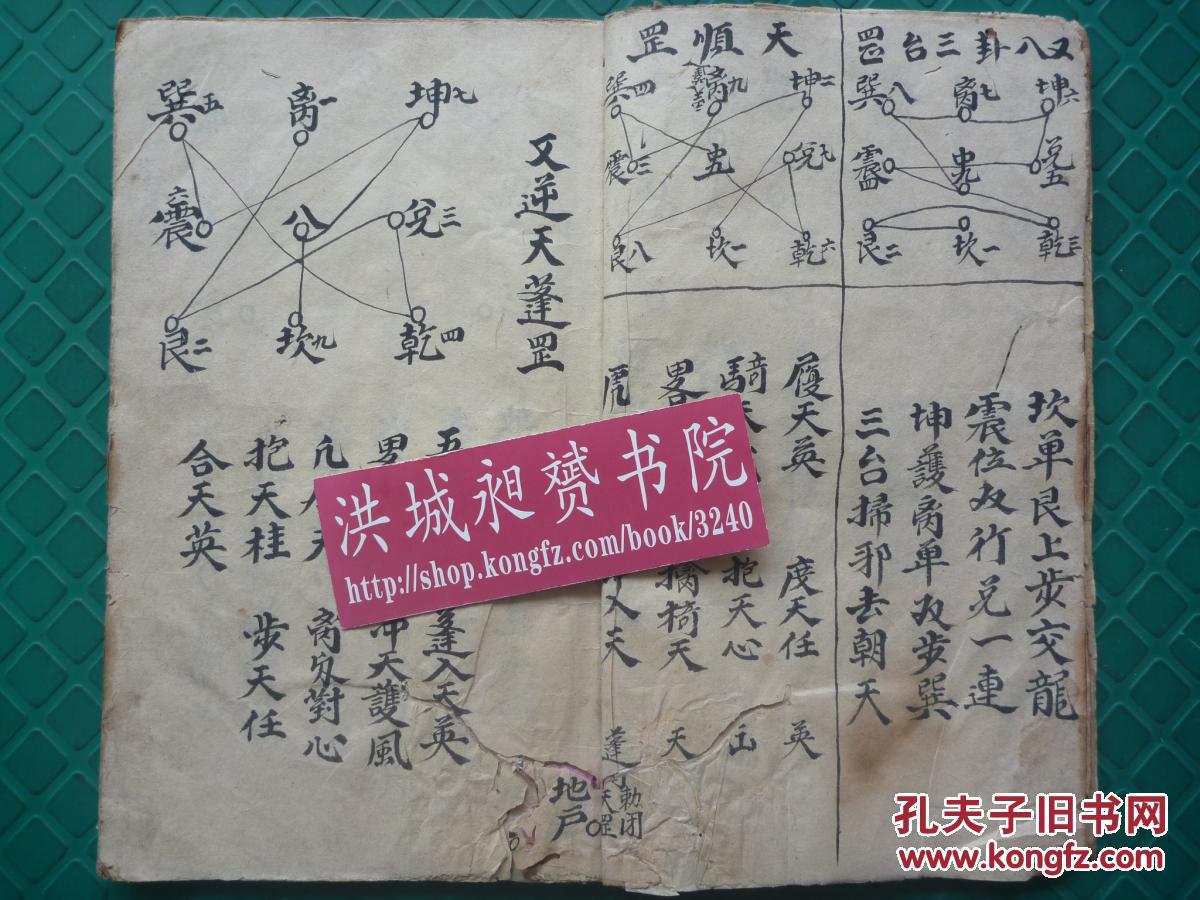 又八卦三台罡
巽八 离七 坤六
震四 中九 兑五
艮二 坎一 乾三
坎单艮上步交龍
震位双行兑一連
坤護离单双步巽
三台掃邪去朝天
天順罡
巽四 离九 坤二
震三 中五 兑七
艮八 坎一 乾六
履天英 度天任 英
騎 抱天心
畧 擒犄天 天
入天 蓬
勅闭
天罡
地户
又逆天蓬罡
巽五 离一 坤七
震六 八 兑三
艮二 坎九 乾四
五 蓬入天英
冲天護風
离 對心
抱天桂 步天任
合天英
洪城昶赟书院
http://shop.kongfz.com/book/3240
孔夫子旧书网
www.kongfz.com